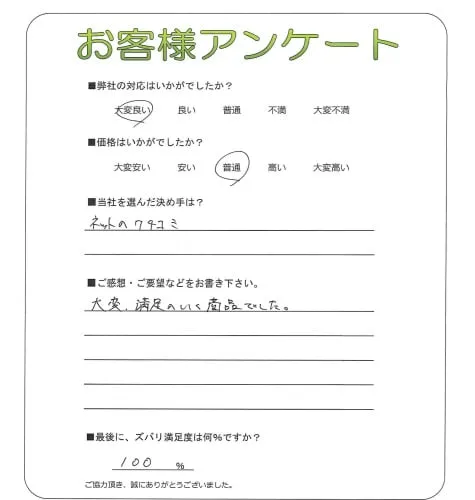 お客様アンケート
■弊社の対応はいかがでしたか？
大変良い 良い 普通 不満 大変不満
■価格はいかがでしたか？
大変安い 安い 普通 高い 大変高い
■当社を選んだ決め手は？
ネットのクチコミ
■ご感想・ご要望などをお書き下さい。
大変、満足のいく商品でした。
■最後に、ズバリ満足度は何%ですか？
100 %
ご協力頂き、誠にありがとうございました。